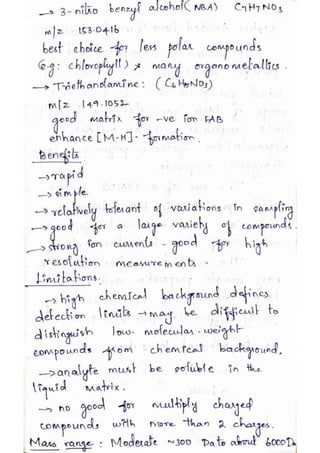 → 3-nitro benzyl alcohol (NBA) C7H7NO3
m/z : 153.0416
best choice for less polar compounds
(e.g: chlorophyll) & many organometallics.
→ Triethanolamine: (C6H15NO3)
m/z 149.1052
good matrix for -ve ion FAB
enhance [M-H]- formation.
Benefits
→ rapid
→ simple
→ relatively tolerant of variations in sampling
→ good for a large variety of compounds.
→ strong ion currents - good for high
resolution measurements.
Limitations:
→ high chemical background defines
detection limits → may be difficult to
distinguish low-molecular-weight
compounds from chemical background.
→ analyte must be soluble in the
liquid matrix.
→ no good for multiply charged
compounds with more than 2 charges.
Mass range: Moderate ~300 Da to about 6000 Da